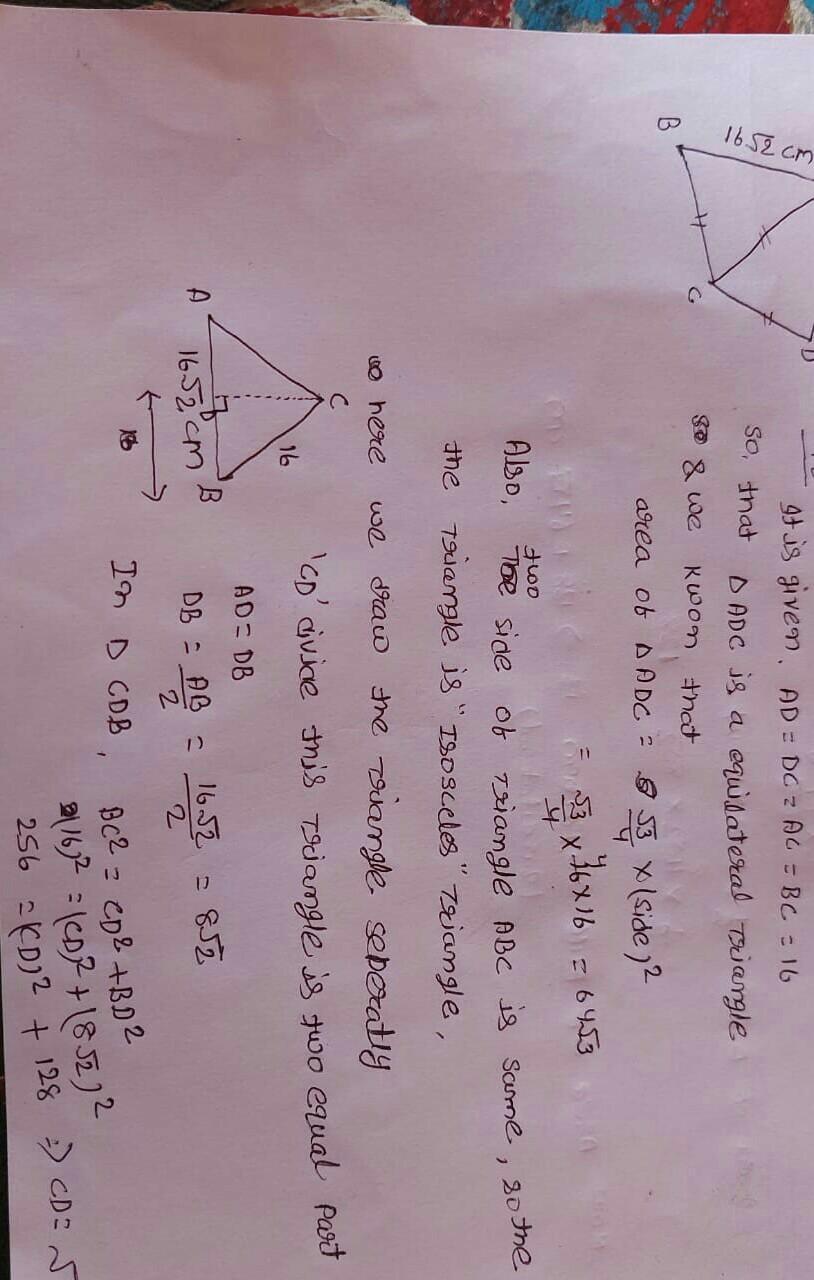 16√2 cm
B
C
D
It is given, AD = DC = AC = BC = 16
So, that Δ ADC is a equilateral Triangle
& we kwon, that
area of Δ ADC = √3/4 x (side)²
= √3/4 x 16 x 16 = 64√3
4
Also, two side of Triangle ABC is same, so the
the Triangle is "Isosceles" Triangle,
here we draw the Triangle seperatly
C
16
A
D
B
16√2 cm
'CD' divide this Triangle is two equal part
AD = DB
DB = AB/2 = 16√2/2 = 8√2
In Δ CDB, BC² = CD² + BD²
(16)² = (CD)² + (8√2)²
256 = (CD)² + 128 ⇒ CD = √